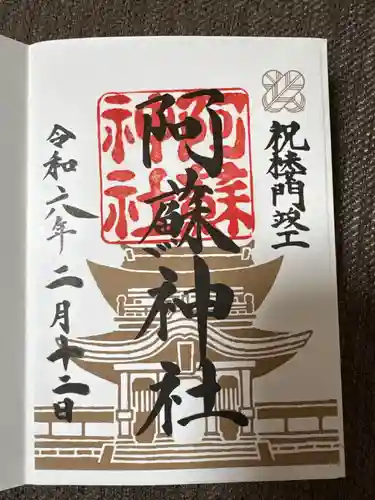 祝楼門竣工
阿蘇神社
阿蘇神社
令和六年二月廿二日